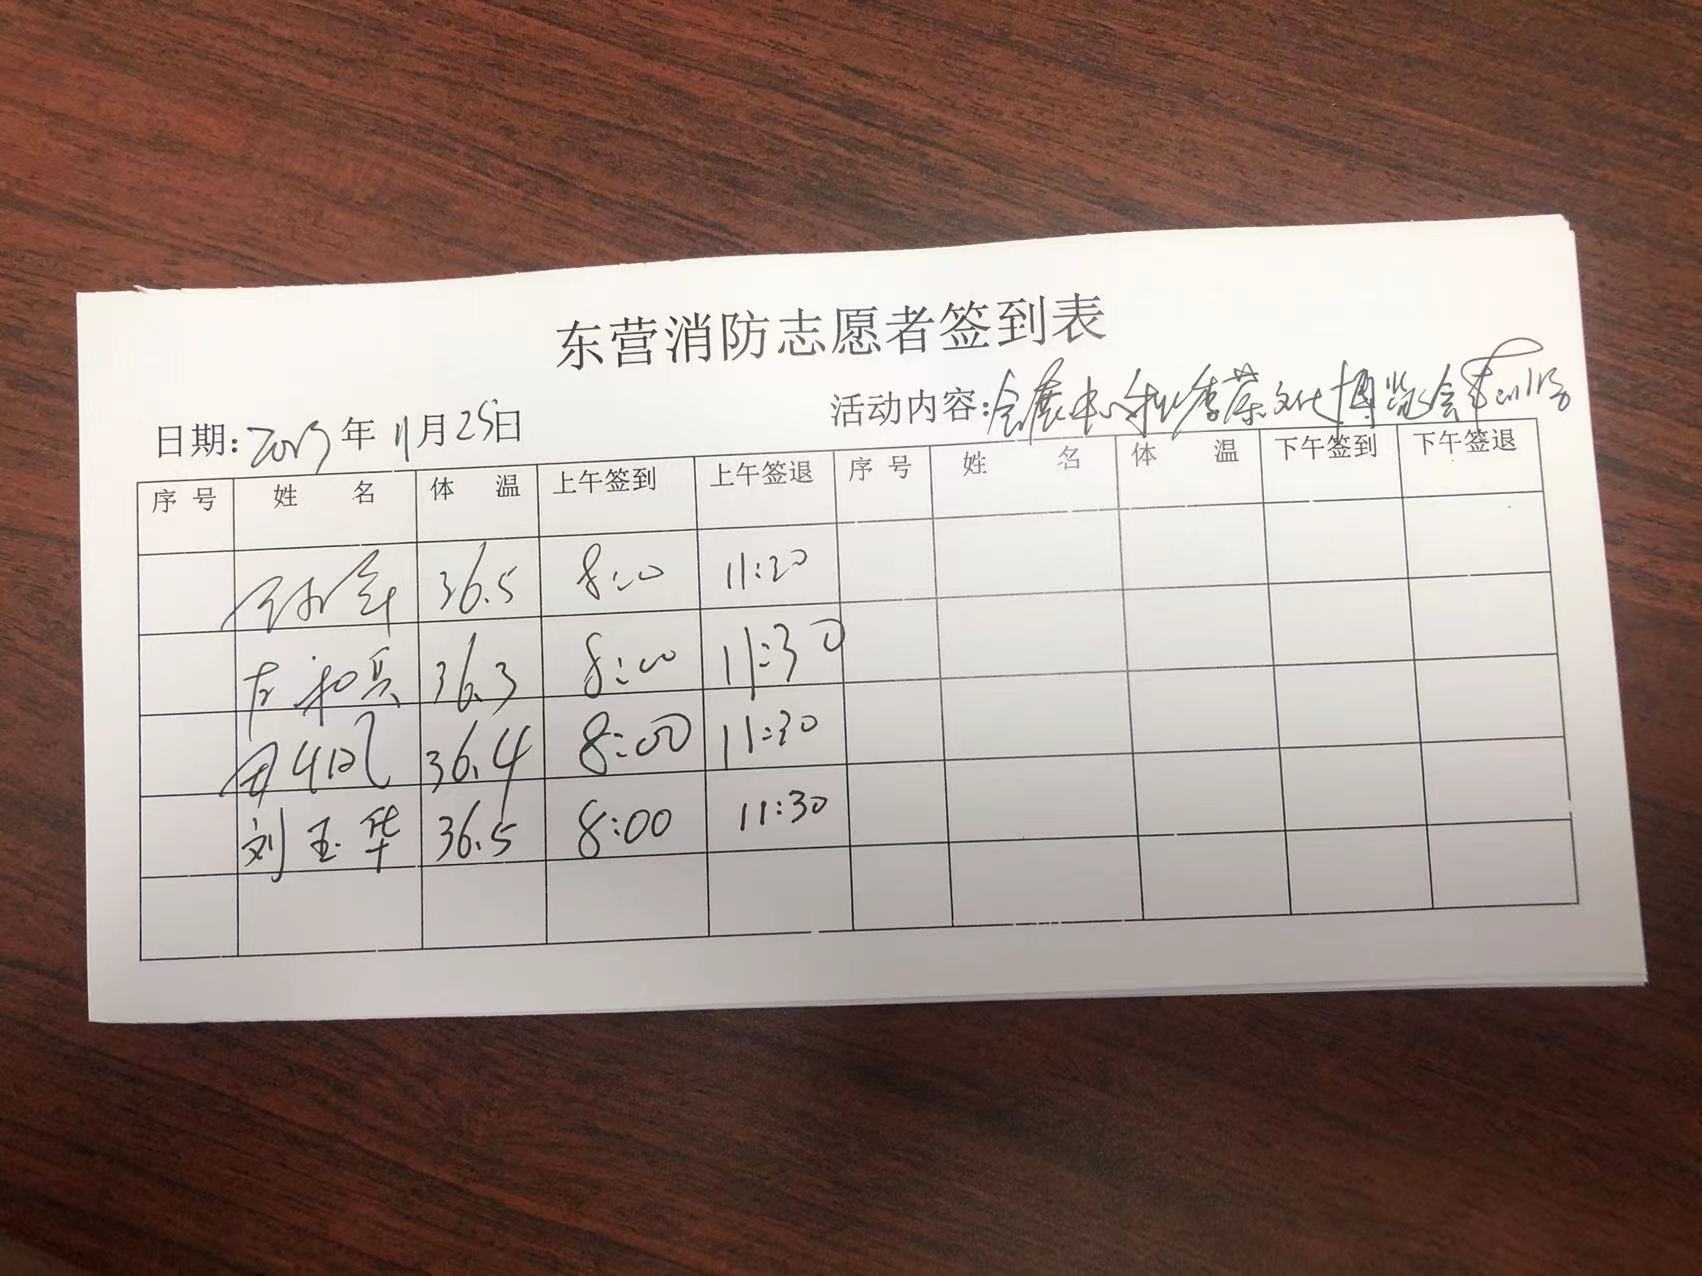 东营消防志愿者签到表
日期: 2023年 11月25日 活动内容: 会展中心秋季茶文化博览会
序号 姓名 体温 上午签到 上午签退 序号 姓名 体温 下午签到 下午签退
36.5 8:00 11:30
36.3 8:00 11:30
36.4 8:00 11:30
刘玉华 36.5 8:00 11:30